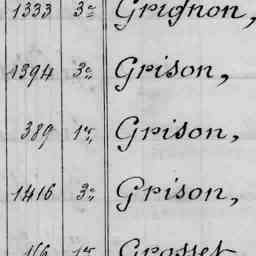 1333 3e Grignon,
1394 3e Grison,
389 1er Grison,
1416 3e Grison,
1er Grosset